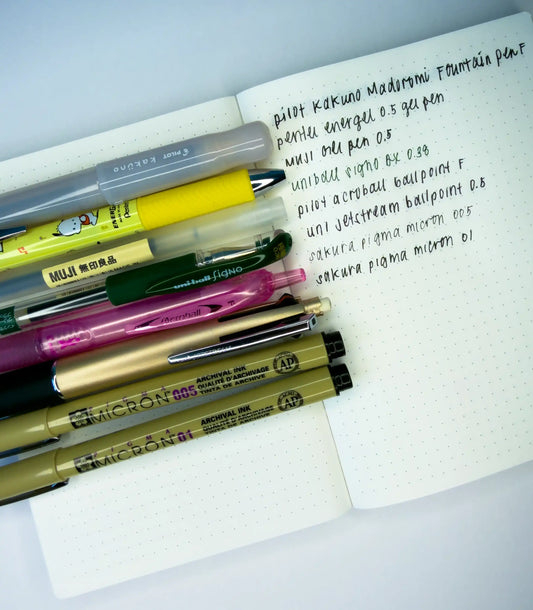 pilot kakuno Madoromi Fountain pen F
pentel energel 0.5 gel pen
MUJI gel pen 0.5
uniball signo DX 0.38
pilot acroball ballpoint F
uni jetstream ballpoint 0.5
sakura pigma micron 005
sakura pigma micron 01
PILOT kakuno
MUJI 無印良品
uni-ball SIGNO
Acroball F
MICRON 005 ARCHIVAL INK
QUALITÉ D'ARCHIVAGE
TINTA DE ARCHIVE
AP
MICRON 01 ARCHIVAL INK
QUALITÉ D'ARCHIVAGE
TINTA DE ARCHIVE
AP